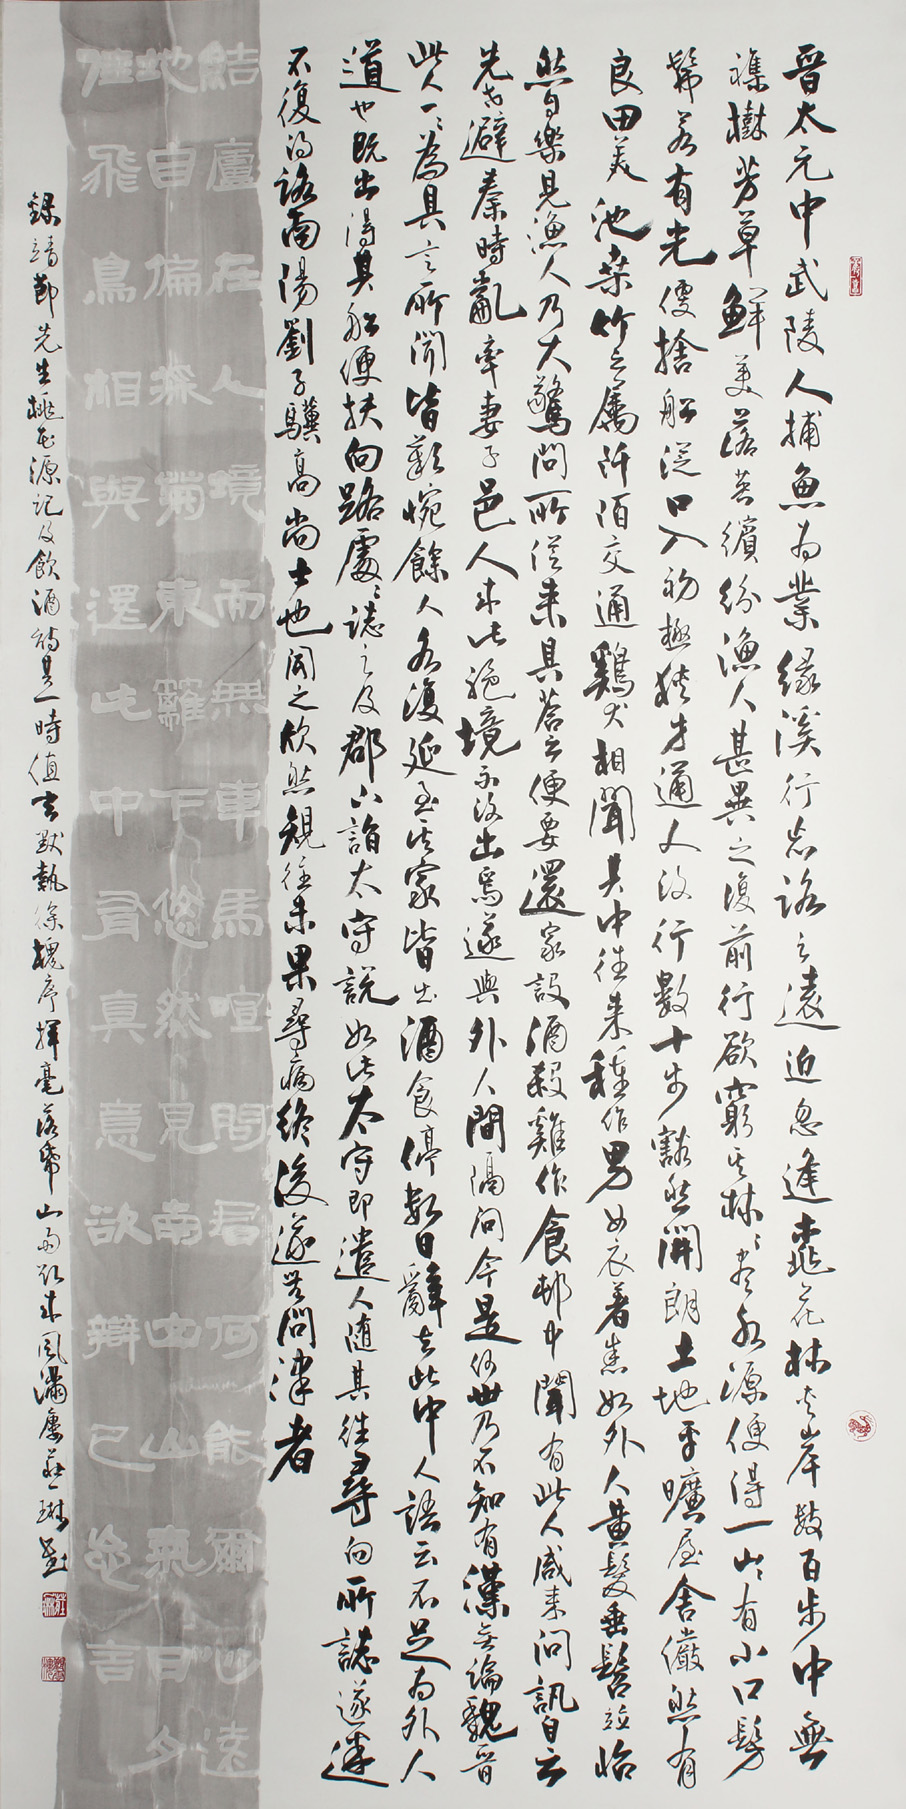 晉太元中武陵人捕魚為業緣溪行忘路之遠近忽逢桃花林夾岸數百步中無
襍樹芳草鮮美落英繽紛漁人甚異之復前行欲窮其林〻盡水源便得一山〻有小口髣
髴若有光便捨船從口入初極狹才通人復行數十步豁然開朗土地平曠屋舍儼然有
良田美池桑竹之屬阡陌交通鷄犬相聞其中往來種作男女衣着悉如外人黄髮垂髫竝怡
然自樂見漁人乃大驚問所從來具答之便要還家設酒殺雞作食邨中聞有此人咸來問訊自云
先世避秦時亂率妻子邑人來此絕境不復出焉遂與外人間隔問今是何世乃不知有漢無論魏晉
此人一〻為具言所聞皆歎惋餘人各復延至其家皆出酒食停數日辭去此中人語云不足為外人
道也既出得其船便扶向路處〻誌之及郡下詣太守說如此太守即遣人隨其往尋向所誌遂迷
不復得路南陽劉子驥高尚士也聞之欣然規往未果尋病終後遂無問津者
結廬在人境而無車馬喧問君何能爾心遠
地自偏採菊東籬下悠然見南山山氣日夕
佳飛鳥相與還此中有真意欲辯已忘言
錄靖節先生桃花源記及飲酒詩其一時值玄黓執徐槐序揮毫落帋山雨欲來風瀟廔莊琳書